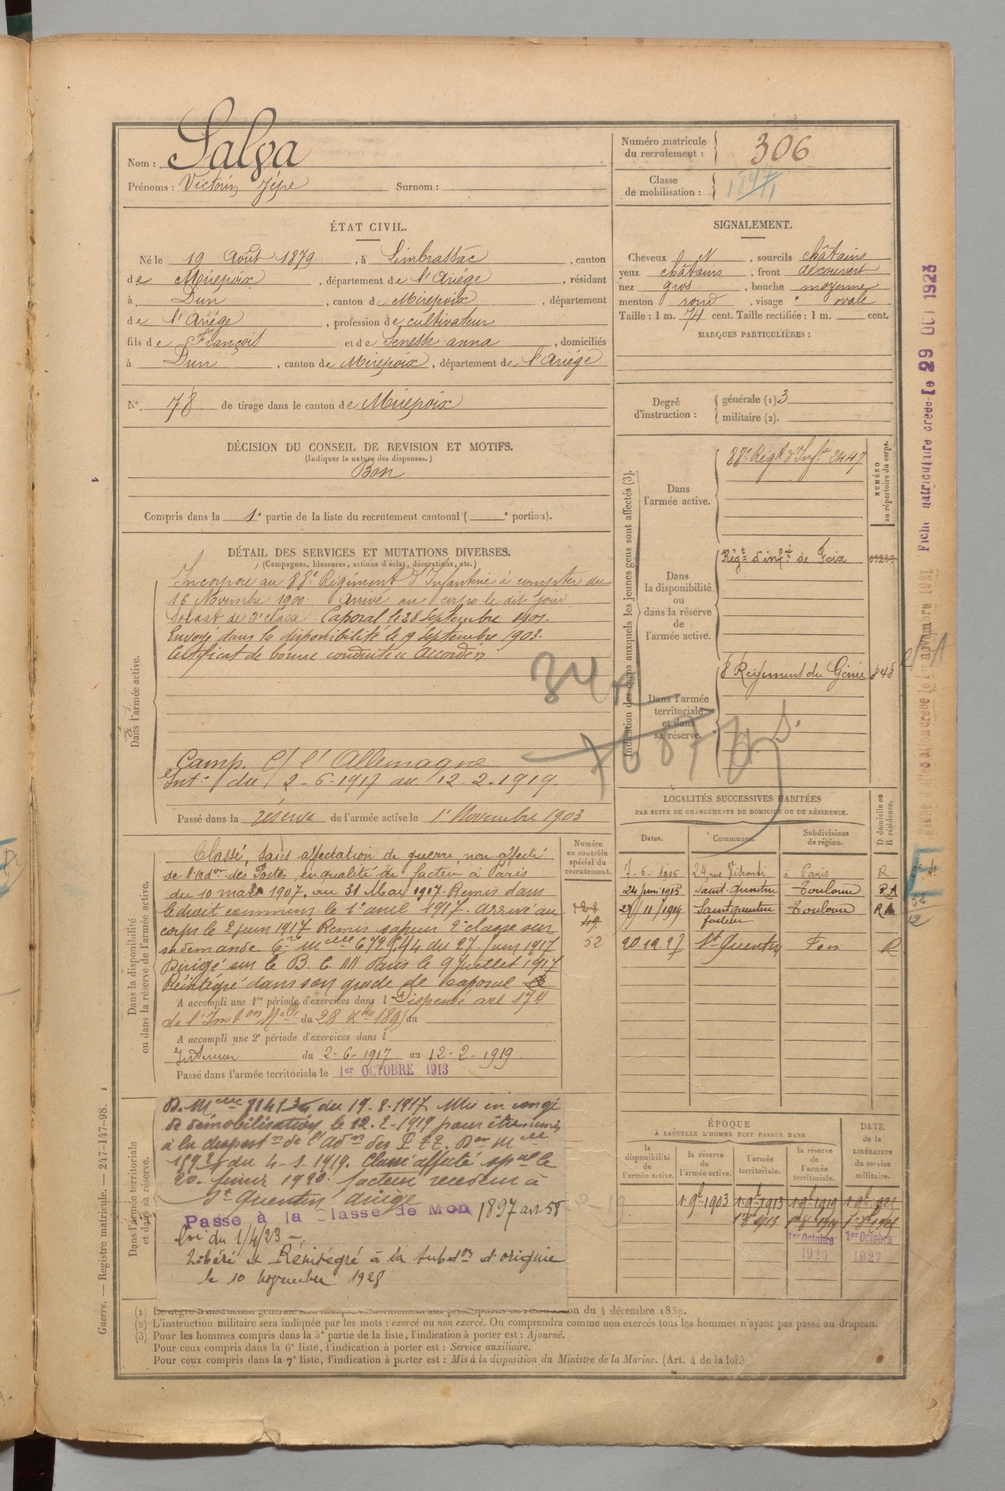 Nom : Salva
Prénoms : Victorin Surnom :
Numéro matricule du recrutement : 306
Classe de mobilisation : 1897
ÉTAT CIVIL.
Né le 19 Août 1879, à Limbrassac, canton
de Mirepoix, département de l'Ariége, résidant
à Dun, canton de Mirepoix, département
de l'Ariége, profession de cultivateur
fils de François et de Senesse anna, domiciliés
à Dun, canton de Mirepoix, département de l'Ariége
N° 78 de tirage dans le canton de Mirepoix
SIGNALEMENT.
Cheveux N, sourcils châtains
yeux châtains, front découvert
nez gros, bouche moyenne
menton rond, visage ovale
Taille : 1 m. 74 cent. Taille rectifiée : 1 m. cent.
MARQUES PARTICULIÈRES :
Degré d'instruction : générale (1) 3
militaire (2).
DÉCISION DU CONSEIL DE REVISION ET MOTIFS.
(Indiquer la nature des dispenses.)
Bon
Compris dans la 1e partie de la liste du recrutement cantonal ( e portion).
DÉTAIL DES SERVICES ET MUTATIONS DIVERSES.
(Campagnes, blessures, actions d'éclat, décorations, etc.)
Dans l'armée active.
Incorporé au 88e Régiment d'Infanterie à compter du
16 Novembre 1900. Arrivé au corps le dit jour
Soldat de 2e classe. Caporal le 28 Septembre 1901.
Envoyé dans la disponibilité le 9 Septembre 1903.
Certificat de bonne conduite Accordé
Camp. C/ l'Allemagne
Intr du 2-6-1917 au 12-2-1919.
Passé dans la réserve de l'armée active le 1er Novembre 1903
Dans la disponibilité ou dans la réserve de l'armée active.
Classé, sans affectation de guerre, non affecté
de l'adon des Postes, en qualité de facteur à Paris
du 10 mars 1907. au 31 Mars 1917. Remis dans
le droit commun le 1er avril 1917. Arrivé au
corps le 2 juin 1917 Remis sapeur 2e classe sur
sa demande du 27 juin 1917
Dirigé sur le B. C M Paris le 9 juillet 1917
Réintégré dans son grade de Caporal
A accompli une 1re période d'exercices dans l Dispensé art 174
du 28 Xbre 1895 au
A accompli une 2e période d'exercices dans l
Intérieur du 2-6-1917 au 12-2-1919.
Passé dans l'armée territoriale le 1er OCTOBRE 1913
Dans l'armée territoriale et dans sa réserve.
du 19-8-1917. Mis en congé
de démobilisation le 12-2-1919 pour être remis
à la disposon de l'adon des P.T.T.
du 4-1-1919. Classé affecté spal le
20 février 1920. facteur receveur à
St Quentin
Passé à la Classe de Mon 1897 art 58
Loi du 1/4/23 -
Libéré et Réintégré à la subdon d'origine
le 10 novembre 1928
Indication des corps auxquels les jeunes gens sont affectés (3).
NUMÉRO au répertoire du corps.
Dans l'armée active.
88e Régt d'Infie 3447
Dans la disponibilité ou dans la réserve de l'armée active.
Régt d'infie de Foix
Dans l'armée territoriale et dans sa réserve.
8 Régiment du Génie 848
LOCALITÉS SUCCESSIVES HABITÉES
PAR SUITE DE CHANGEMENTS DE DOMICILE OU DE RÉSIDENCE.
Numéro au contrôle spécial du recrutement.
Dates. Communes. Subdivisions de région. D domicile ou R résidence.
7-6-1905 à Paris R
24 juin 1913 Saint Quentin Toulouse
29/11/1919 Saint quentin facteur Toulouse
52 20.12.27 St Quentin Foix R
ÉPOQUE
À LAQUELLE L'HOMME DOIT PASSER DANS
la disponibilité de l'armée active. la réserve de l'armée active. l'armée territoriale. la réserve de l'armée territoriale.
DATE de la LIBÉRATION du service militaire.
1 9bre 1903 1 9bre 1913 1 9bre 1919
1er Octobre 1920 1er Octobre 1927
(2) L'instruction militaire sera indiquée par les mots : exercé ou non exercé. On comprendra comme non exercés tous les hommes n'ayant pas passé au drapeau.
(3) Pour les hommes compris dans la 5e partie de la liste, l'indication à porter est : Ajourné.
Pour ceux compris dans la 6e liste, l'indication à porter est : Service auxiliaire.
Pour ceux compris dans la 7e liste, l'indication à porter est : Mis à la disposition du Ministre de la Marine. (Art. 4 de la loi.)
Guerre. — Registre matricule. — 247-147-98.
Fiche matriculaire créée le 29 OCT 1923